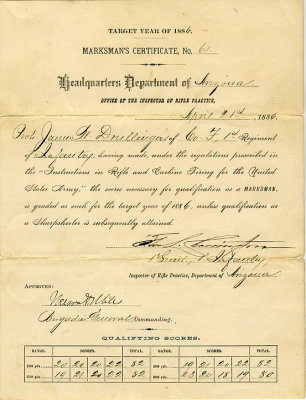 TARGET YEAR OF 1886.
MARKSMAN'S CERTIFICATE, No. 61
Headquarters Department of Arizona
OFFICE OF THE INSPECTOR OF RIFLE PRACTICE,
April 21st, 1886.
Pvt. James W. of Co. F, 1st Regiment
of Infantry, having made, under the regulations prescribed in
the "Instructions in Rifle and Carbine Firing for the United
States Army," the scores necessary for qualification as a MARKSMAN,
is graded as such for the target year of 1886, unless qualification as
a Sharpshooter is subsequently attained.
1st Lieut.
Inspector of Rifle Practice, Department of Arizona
APPROVED:
Nelson A. Miles
Brigadier General Commanding.
QUALIFYING SCORES:
RANGE. SCORES. TOTAL. RANGE. SCORES. TOTAL.
200 yds. 20 20 20 22 82
300 yds. 19 21 20 22 82
yds. 19 21 20 22 82
600 yds. 23 20 18 19 80